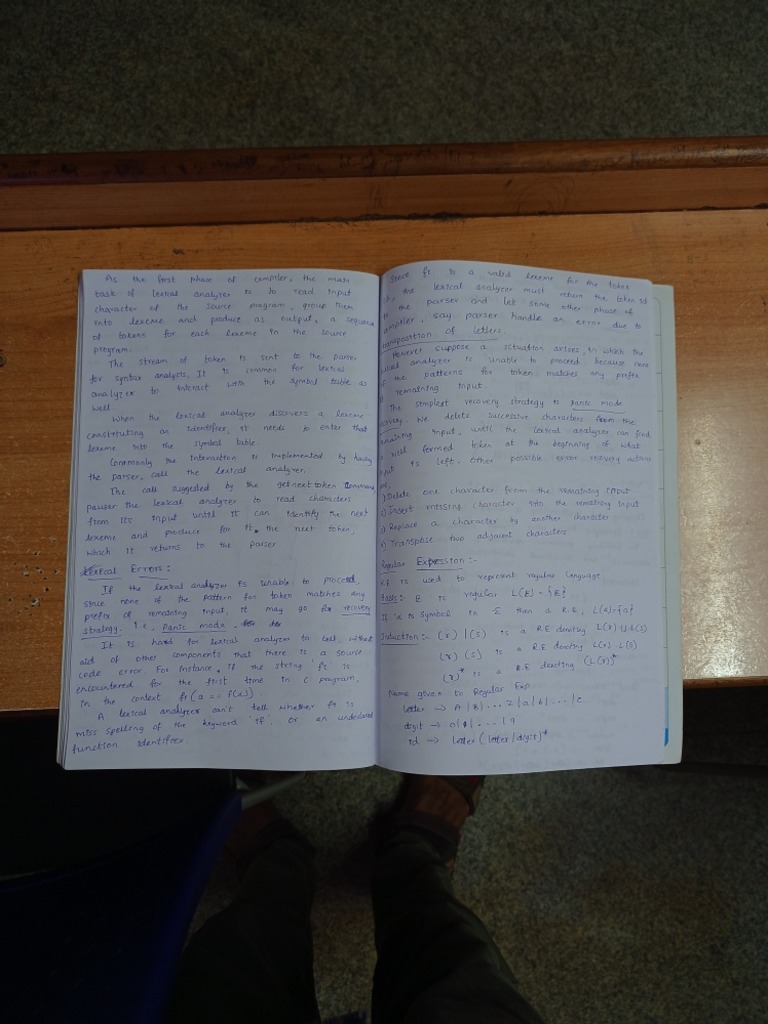 As the first phase of compiler, the main
task of lexical analyzer is to read input
character of the source program, group them
into lexeme and produce as output, a sequence
of tokens for each lexeme in the source
program.
The stream of token is sent to the parser
for syntax analysis. It is common for lexical
analyzer to interact with the symbol table as
well.
When the lexical analyzer discovers a lexeme
constituting an identifier, it needs to enter that
lexeme into the symbol table.
Commonly the interaction is implemented by having
the parser, call the lexical analyzer.
The call suggested by the getnexttoken command
pauser the lexical analyzer to read characters
from its input until it can identify the next
lexeme and produce for it the next token,
which it returns to the parser
Lexical Errors:
If the lexical analyzer is unable to proceed,
since none of the pattern for token matches any
prefix of remaining input, it may go for recovery
strategy. i.e, panic mode.
It is hard for lexical analyzer to tell, without
aid of other components that there is a source
code error. For instance, if the string 'ft' is
encountered for the first time in C program,
in the context ft(a == f(x)).
A lexical analyzer can't tell whether ft is
miss spelling of the keyword 'if'. or an undeclared
function identifier.
Since ft is a valid lexeme for the token
the lexical analyzer must return the token id
to the parser and let some other phase of
compiler, say parser handle an error due to
transposition of letters.
However suppose a situation arises, in which the
lexical analyzer is unable to proceed because none
of the patterns for token matches any prefix
of remaining input.
The simplest recovery strategy is panic mode
recovery. We delete successive characters from the
remaining input, until the lexical analyzer can find
a well formed token at the beginning of what
input is left. Other possible error recovery actions
are,
1) Delete one character from the remaining input
2) Insert missing character into the remaining input
3) Replace a character by another character
4) Transpose two adjacent characters
Regular Expression :-
R.E is used to represent regular language
Basis: E is regular L(E) = {E}
If 'a' is symbol in Σ than a R.E, L(a)={a}
Induction :- (r) | (s) is a R.E denoting L(r) U L(s)
(r) (s) is a R.E denoting L(r) . L(s)
(r)* is a R.E denoting (L(r))*
Name given to Regular Exp.
letter → A | B | ... Z | a | b | ... | z
digit → 0 | 1 | .... | 9
id → letter (letter/digit)*